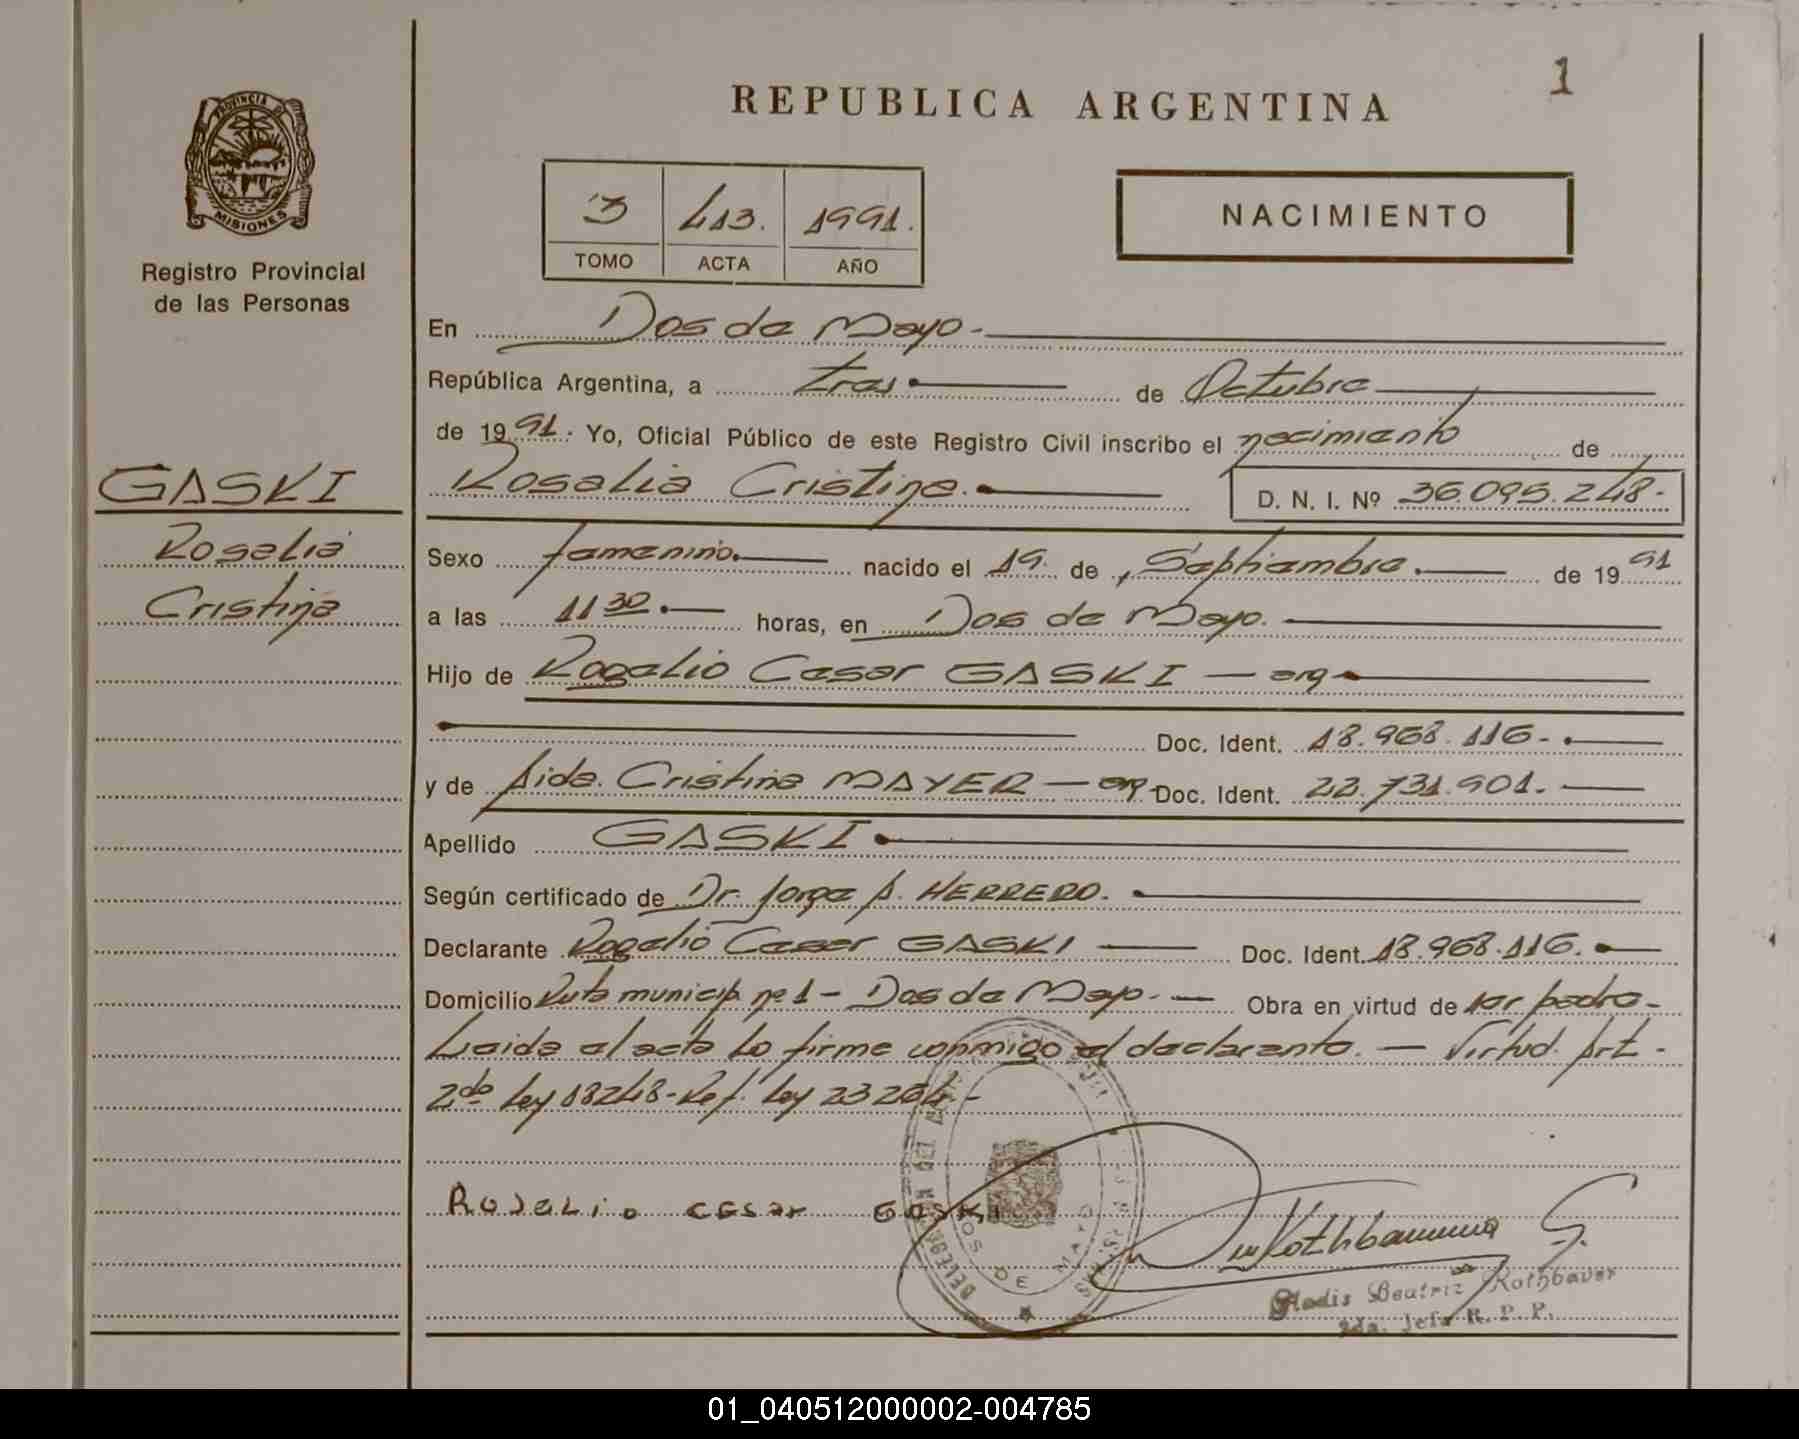 1
REPUBLICA ARGENTINA
PROVINCIA DE
MISIONES
Registro Provincial
de las Personas
3 413. 1991.
TOMO ACTA AÑO
NACIMIENTO
En Dos de Mayo.-
República Argentina, a tres de Octubre
de 1991. Yo, Oficial Público de este Registro Civil inscribo el nacimiento de
Rosalia Cristina. D. N. I. Nº 36.095.248.-
GASKI
Rosalia
Cristina
Sexo femenino. nacido el 19. de Septiembre. de 1991
a las 11 30 horas, en Dos de Mayo.
Hijo de Rogelio Cesar GASKI — arg-
Doc. Ident. 18.968.116-.
y de Aida Cristina MAYER — arg- Doc. Ident. 22.731.901.
Apellido GASKI
Según certificado de Dr. Jorge A. HERRERO.
Declarante Rogelio Cesar GASKI Doc. Ident. 18.968.116.
Domicilio Ruta municip. nº 1 - Dos de Mayo.- Obra en virtud de ser padre-
Leida el acta la firma conmigo el declarante. — Virtud. Art-
2do ley 18248-Ref. ley 23264-
ROJELIO CESAR GASKI
DOS DE MAYO
Gladis Beatriz Rothbauer
2da. Jefe R. P. P.
01_040512000002-004785